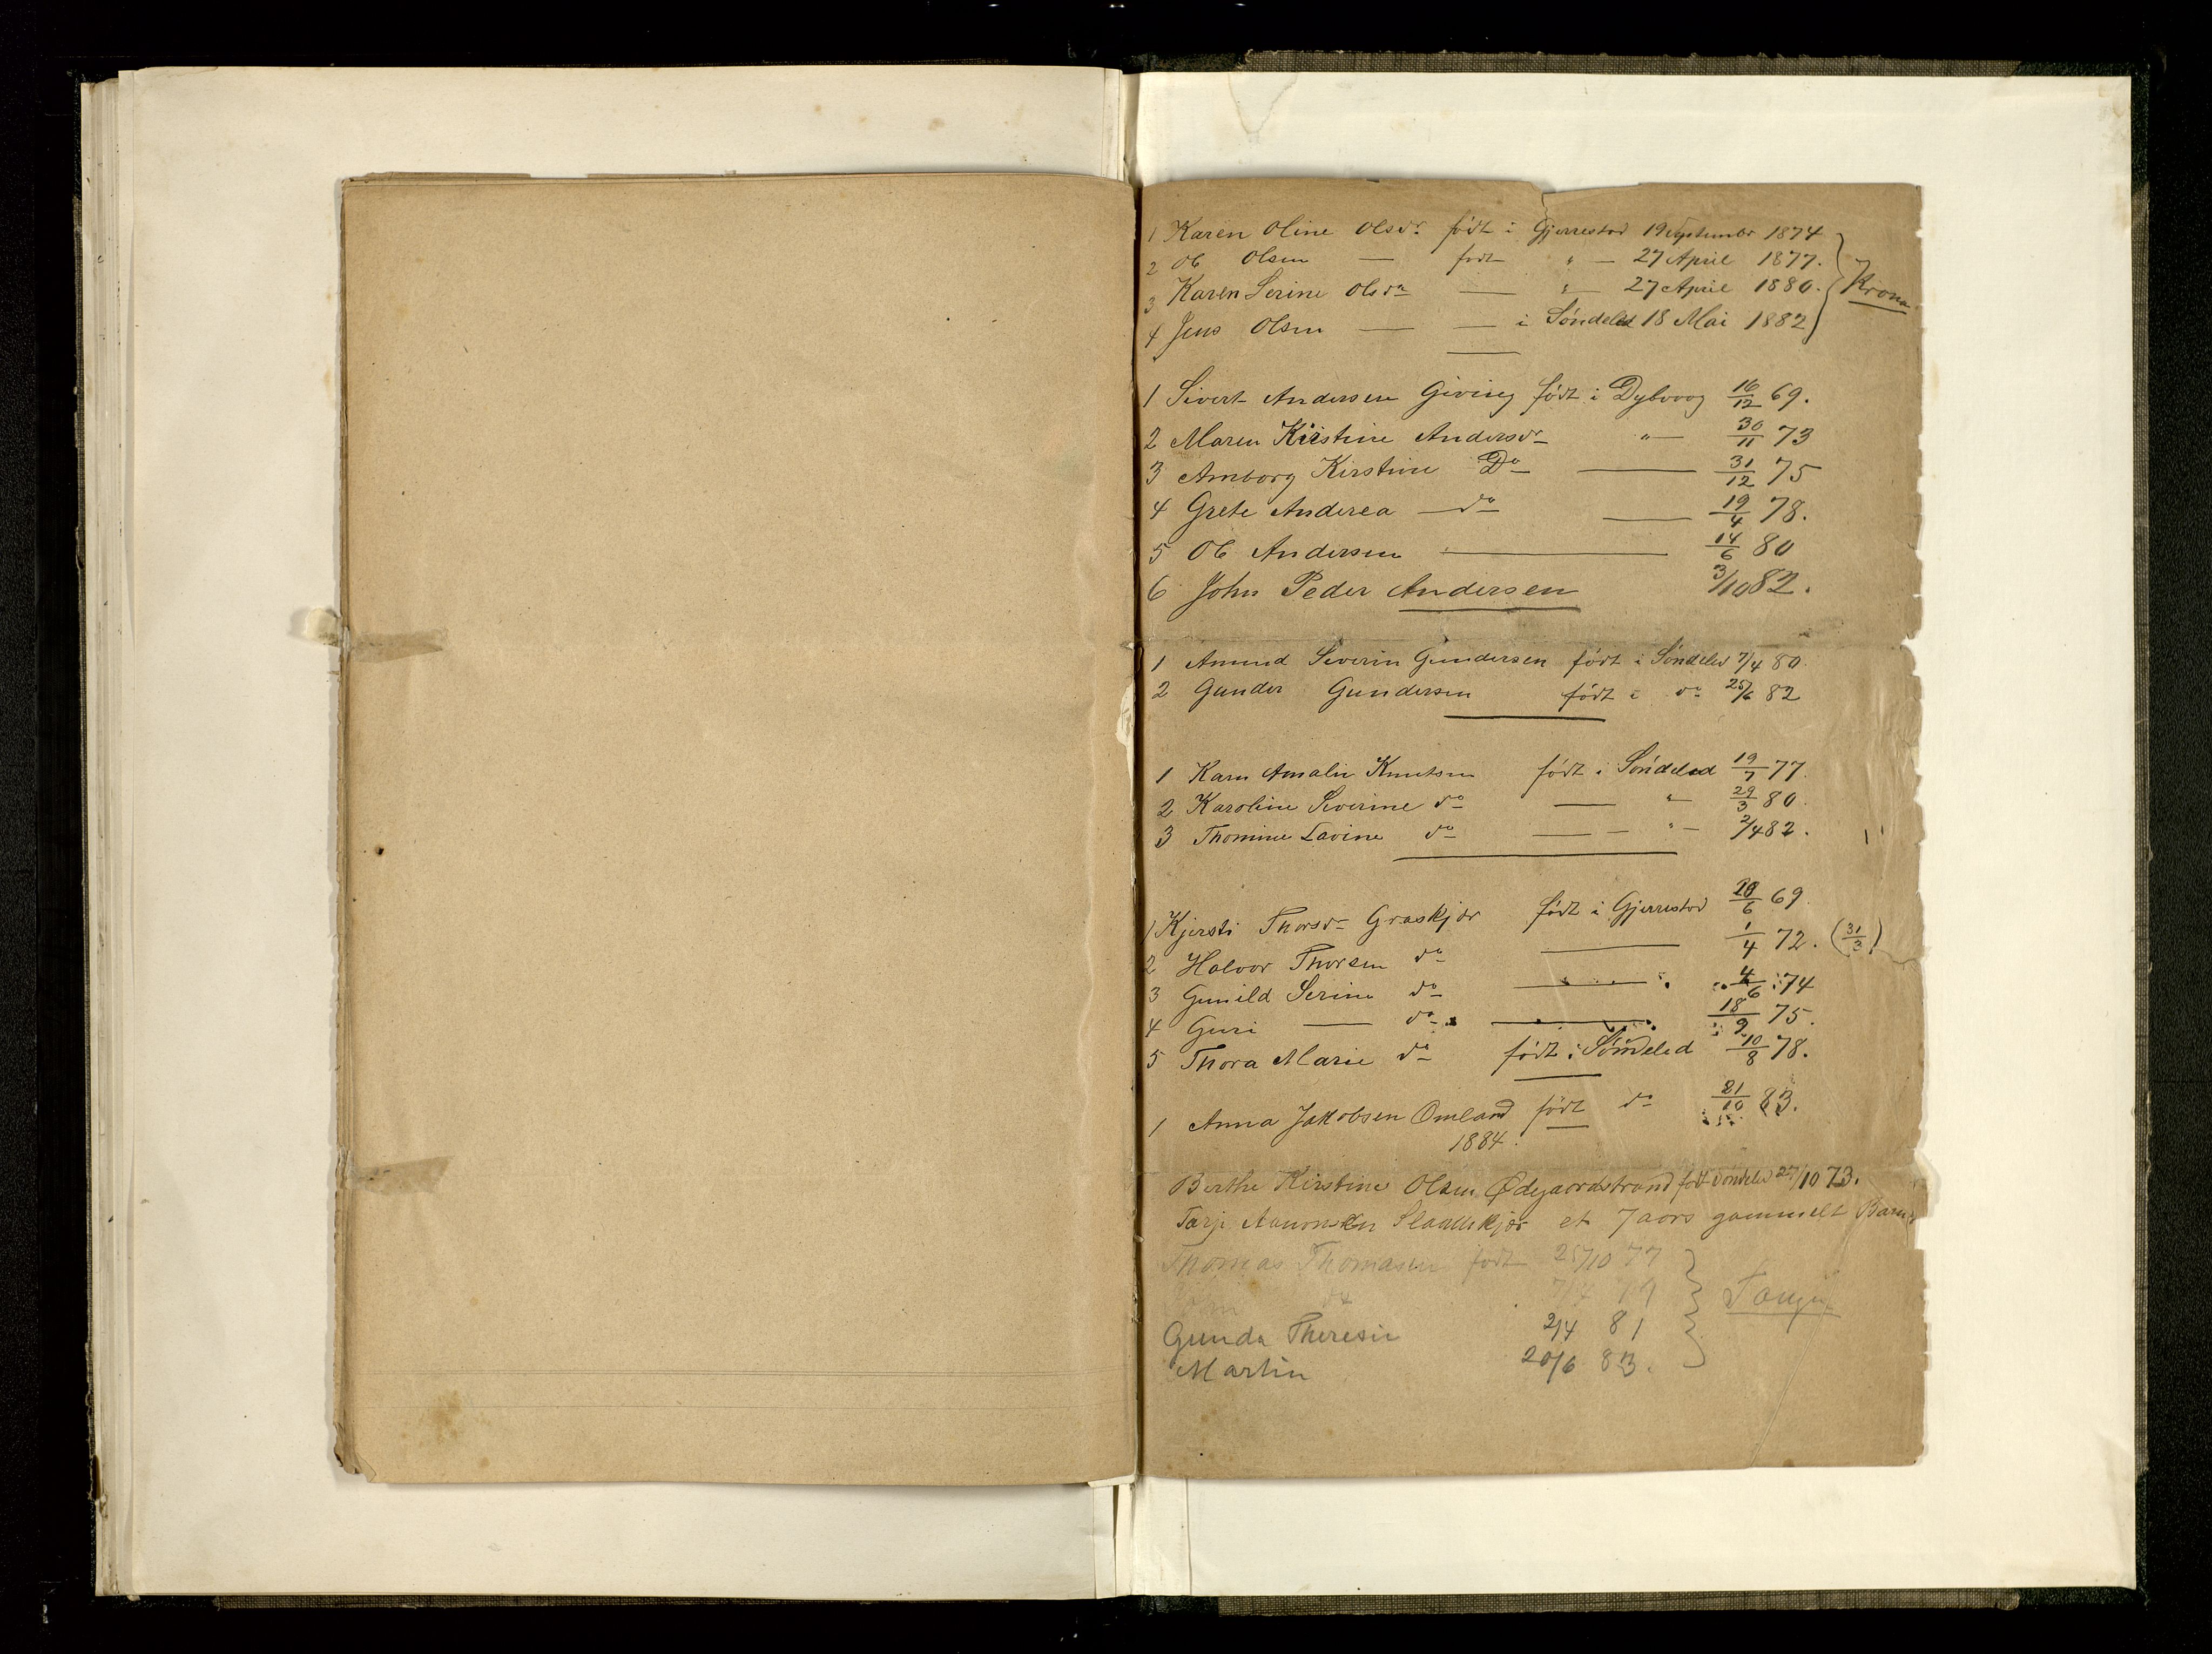 1 Karen Oline Olsdr født i Gjerrestad 19 Septembr 1874
2 Ole Olsen — født " — 27 April 1877.
3 Karen Serine Olsdr — " — 27 April 1880. Krona
4 Jens Olsen — — i Søndeled 18 Mai 1882
1 Sivert Andersen Giving født i Dybvaag 16/12 69.
2 Maren Kirstine Andersdr " — 30/11 73
3 Amborg Kirstine Do — 31/12 75
4 Grete Anderea — do — 19/4 78.
5 Ole Andersen — 14/6 80
6 John Peder Andersen 3/10 82.
1 Amund Severin Gundersen født i Søndeled 7/4 80.
2 Gunder Gundersen født i do 25/6 82
1 Karen Amalie Knutsen født i Søndeled 19/7 77.
2 Karoline Severine do — " — 29/3 80.
3 Thomine Lavine do — — " — 2/4 82.
1 Kjersti Thorsdr Graskjær født i Gjerrestad 20/6 69.
2 Halvor Thorsen do — 1/4 72. (31/3)
3 Gunild Serine do — 4/6 74
4 Guri — do — 18/9 75.
5 Thora Marie do født i Søndeled 10/8 78.
1 Anna Jakobsen Omland født do 21/10 83.
1884.
Berthe Kirstine Olsen Ødegaardstrand født Søndeled 27/10 73.
Tarje Aamonsen Slaattekjær et 7 aars gammelt Barn
Thomas Thomasen født 25/10 77
John do 7/4 79 Tangen
Gunda Theresie 2/4 81
Martin 20/6 83.